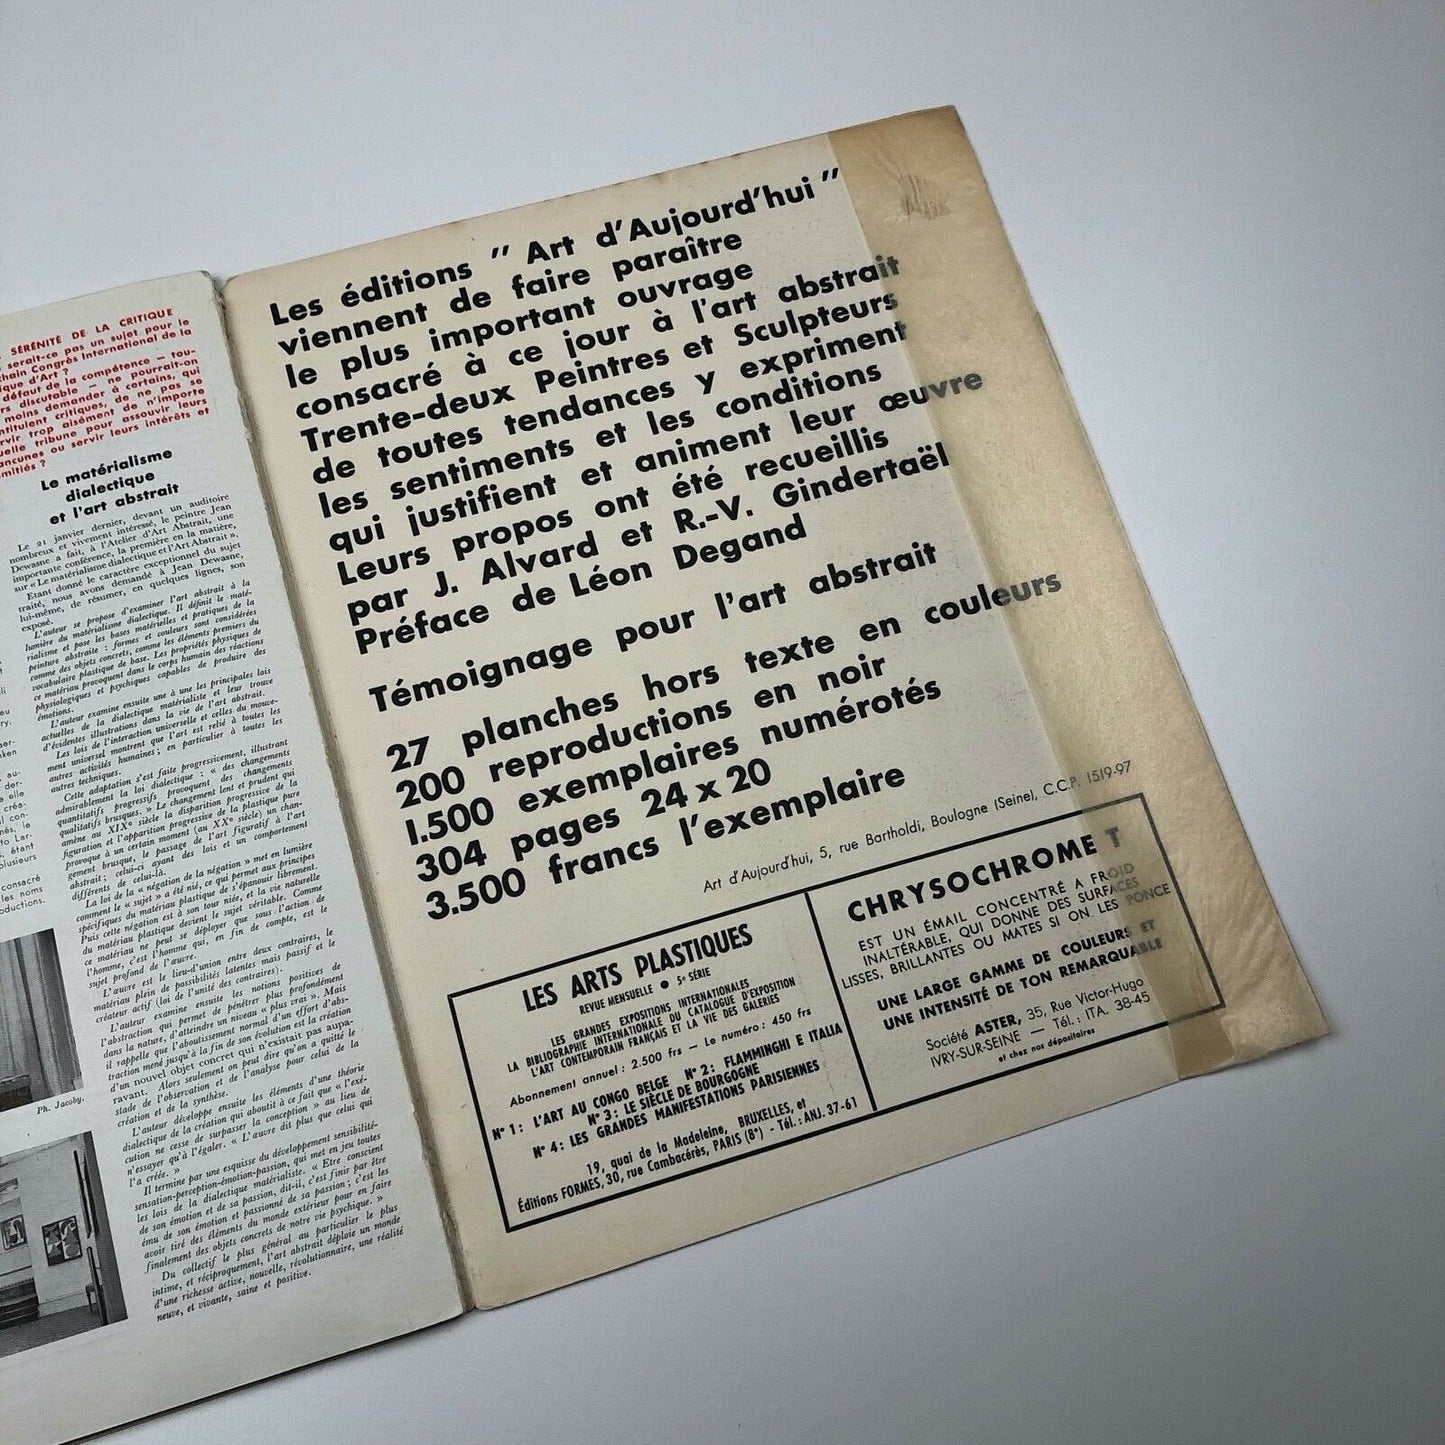 SÉRÉNITÉ DE LA CRITIQUE
serait-ce pas un sujet pour le
chain Congrès International de la
que d'Art ?
défaut de la compétence — tou-
rs discutable — ne pourrait-on
moins demander à certains, qui
stituent critiques, de ne pas se
rvir trop aisément de n'importe
uelle tribune pour assouvir leurs
ancunes ou servir leurs intérêts et
mitiés ?
Le matérialisme
dialectique
et l'art abstrait
Le 21 janvier dernier, devant un auditoire
nombreux et vivement intéressé, le peintre Jean
Dewasne a fait, à l'Atelier d'Art Abstrait, une
importante conférence, la première en la matière,
sur « Le matérialisme dialectique et l'Art Abstrait ».
Etant donné le caractère exceptionnel du sujet
traité, nous avons demandé à Jean Dewasne,
lui-même, de résumer, en quelques lignes, son
exposé.
L'auteur se propose d'examiner l'art abstrait à la
lumière du matérialisme dialectique. Il définit le maté-
rialisme et pose les bases matérielles et pratiques de la
peinture abstraite : formes et couleurs sont considérées
comme des objets concrets, comme les éléments premiers du
vocabulaire plastique de base. Les propriétés physiques de
ce matériau provoquent dans le corps humain des réactions
physiologiques et psychiques capables de produire des
émotions.
L'auteur examine ensuite une à une les principales lois
actuelles de la dialectique matérialiste et leur trouve
d'évidentes illustrations dans la vie de l'art abstrait.
Les lois de l'interaction universelle et celles du mouve-
ment universel montrent que l'art est relié à toutes les
autres activités humaines ; en particulier à toutes les
autres techniques.
Cette adaptation s'est faite progressivement, illustrant
admirablement la loi dialectique : « des changements
quantitatifs progressifs provoquent des changements
qualitatifs brusques. » Le changement lent et prudent qui
amène au XIXe siècle la disparition progressive de la
figuration et l'apparition progressive de la plastique pure
provoque à un certain moment (au XXe siècle) un chan-
gement brusque, le passage de l'art figuratif à l'art
abstrait ; celui-ci ayant des lois et un comportement
différents de celui-là.
La loi de la « négation de la négation » met en lumière
comment le « sujet » a été nié, ce qui permet aux principes
spécifiques du matériau plastique de s'épanouir librement.
Puis cette négation est à son tour niée, et la vie naturelle
du matériau plastique devient le sujet véritable. Comme
ce matériau ne peut se déployer que sous l'action de
l'homme, c'est l'homme qui, en fin de compte, est le
sujet profond de l'œuvre.
L'œuvre est le lieu-d'union entre deux contraires, le
matériau plein de possibilités latentes mais passif et le
créateur actif (loi de l'unité des contraires).
L'auteur examine ensuite les notions positives de
l'abstraction qui permet de pénétrer plus profondément
dans la nature, d'atteindre un niveau « plus vrai ». Mais
il rappelle que l'aboutissement normal d'un effort d'abs-
traction mené jusqu'à la fin de son évolution est la création
d'un nouvel objet concret qui n'existait pas aupa-
ravant. Alors seulement on peut dire qu'on a quitté le
stade de l'observation et de l'analyse pour celui de la
création et de la synthèse.
L'auteur développe ensuite les éléments d'une théorie
dialectique de la création qui aboutit à ce fait que « l'exé-
cution ne cesse de surpasser la conception » au lieu de
n'essayer qu'à l'égaler. « L'œuvre dit plus que celui qui
l'a créée. »
Il termine par une esquisse du développement sensibilité-
sensation-perception-émotion-passion, qui met en jeu toutes
les lois de la dialectique matérialiste. « Etre conscient
de son émotion et de sa passion, dit-il, c'est finir par être
ému de son émotion et passionné de sa passion ; c'est les
avoir tiré des éléments du monde extérieur pour en faire
finalement des objets concrets de notre vie psychique. »
Du collectif le plus général au particulier le plus
intime, et réciproquement, l'art abstrait déploie un monde
d'une richesse active, nouvelle, révolutionnaire, une réalité
neuve, et vivante, saine et positive.
Ph. Jacoby.
Les éditions " Art d'Aujourd'hui "
viennent de faire paraître
le plus important ouvrage
consacré à ce jour à l'art abstrait
Trente-deux Peintres et Sculpteurs
de toutes tendances y expriment
les sentiments et les conditions
qui justifient et animent leur œuvre
Leurs propos ont été recueillis
par J. Alvard et R.-V. Gindertaël
Préface de Léon Degand
Témoignage pour l'art abstrait
27 planches hors texte en couleurs
200 reproductions en noir
1.500 exemplaires numérotés
304 pages 24 x 20
3.500 francs l'exemplaire
Art d'Aujourd'hui, 5, rue Bartholdi, Boulogne (Seine), C.C.P. 1519-97
LES ARTS PLASTIQUES
REVUE MENSUELLE ● 5e SÉRIE
LES GRANDES EXPOSITIONS INTERNATIONALES
LA BIBLIOGRAPHIE INTERNATIONALE DU CATALOGUE D'EXPOSITION
L'ART CONTEMPORAIN FRANÇAIS ET LA VIE DES GALERIES
Abonnement annuel : 2.500 frs — Le numéro : 450 frs
N° 1 : L'ART AU CONGO BELGE N° 2 : FLAMMINGHI E ITALIA
N° 3 : LE SIÈCLE DE BOURGOGNE
N° 4 : LES GRANDES MANIFESTATIONS PARISIENNES
19, quai de la Madeleine, BRUXELLES, et
Éditions FORMES, 30, rue Cambacérès, PARIS (8e) - Tél. : ANJ. 37-61
CHRYSOCHROME T
EST UN ÉMAIL CONCENTRÉ A FROID
INALTÉRABLE, QUI DONNE DES SURFACES
LISSES, BRILLANTES OU MATES SI ON LES PONCE
UNE LARGE GAMME DE COULEURS ET
UNE INTENSITÉ DE TON REMARQUABLE
Société ASTER, 35, Rue Victor-Hugo
IVRY-SUR-SEINE — Tél. : ITA. 38-45
et chez nos dépositaires